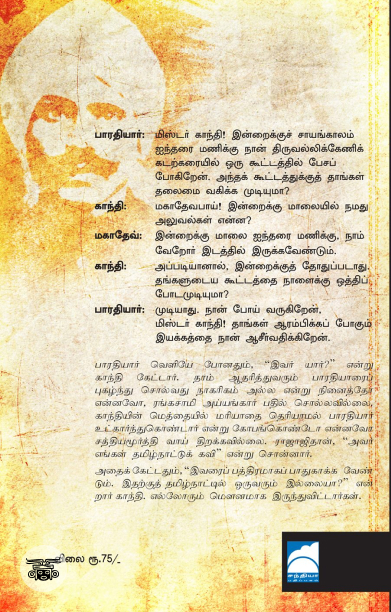 பாரதியார்: மிஸ்டர் காந்தி! இன்றைக்குச் சாயங்காலம்
ஐந்தரை மணிக்கு நான் திருவல்லிக்கேணிக்
கடற்கரையில் ஒரு கூட்டத்தில் பேசப்
போகிறேன். அந்தக் கூட்டத்துக்குத் தாங்கள்
தலைமை வகிக்க முடியுமா?
காந்தி: மகாதேவபாய்! இன்றைக்கு மாலையில் நமது
அலுவல்கள் என்ன?
மகாதேவ்: இன்றைக்கு மாலை ஐந்தரை மணிக்கு, நாம்
வேறோர் இடத்தில் இருக்கவேண்டும்.
காந்தி: அப்படியானால், இன்றைக்குத் தோதுப்படாது.
தங்களுடைய கூட்டத்தை நாளைக்கு ஒத்திப்
போடமுடியுமா?
பாரதியார்: முடியாது. நான் போய் வருகிறேன்,
மிஸ்டர் காந்தி! தாங்கள் ஆரம்பிக்கப் போகும்
இயக்கத்தை நான் ஆசீர்வதிக்கிறேன்.
பாரதியார் வெளியே போனதும், “இவர் யார்?” என்று
காந்தி கேட்டார். தாம் ஆதரித்துவரும் பாரதியாரைப்
புகழ்ந்து சொல்வது நாகரிகம் அல்ல என்று நினைத்தோ
என்னவோ, ரங்கசாமி அய்யங்கார் பதில் சொல்லவில்லை,
காந்தியின் மெத்தையில் மரியாதை தெரியாமல் பாரதியார்
உட்கார்ந்துகொண்டார் என்று கோபங்கொண்டோ என்னவோ
சத்தியமூர்த்தி வாய் திறக்கவில்லை. ராஜாஜிதான், “அவர்
எங்கள் தமிழ்நாட்டுக் கவி” என்று சொன்னார்.
அதைக் கேட்டதும், “இவரைப் பத்திரமாகப் பாதுகாக்க வேண்
டும். இதற்குத் தமிழ்நாட்டில் ஒருவரும் இல்லையா?” என்
றார் காந்தி. எல்லோரும் மௌனமாக இருந்துவிட்டார்கள்.
விலை ரூ.75/-
சந்தியா